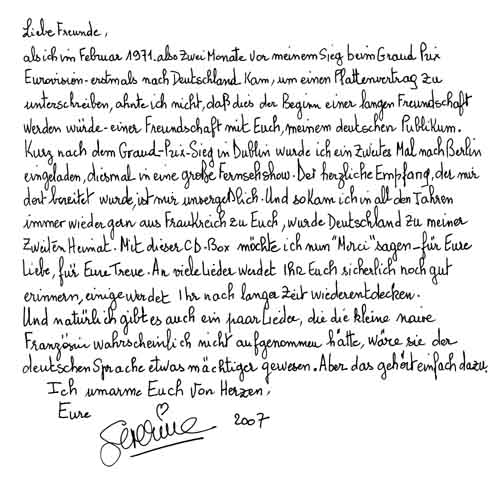 Liebe Freunde,
als ich im Februar 1971. also zwei Monate vor meinem Sieg beim Grand Prix
Eurovision-erstmals nach Deutschland kam, um einen Plattenvertrag zu
unterschreiben, ahnte ich nicht, daß dies der Beginn einer langen Freundschaft
werden würde-einer Freundschaft mit Euch, meinem deutschen Publikum.
Kurz nach dem Grand-Prix-Sieg in Dublin wurde ich ein zweites Mal nach Berlin
eingeladen, diesmal in eine große Fernsehshow. Der herzliche Empfang, der mir
dort bereitet wurde, ist mir unvergeßlich. Und so kam ich in all den Jahren
immer wieder gern aus Frankreich zu Euch, wurde Deutschland zu meiner
zweiten Heimat. Mit dieser CD-Box möchte ich nun "Merci" sagen-für Eure
Liebe, für Eure Treue. An viele Lieder werdet Ihr Euch sicherlich noch gut
erinnern, einige werdet Ihr nach langer Zeit wiederentdecken.
Und natürlich gibt es auch ein paar Lieder, die die kleine naive
Französin wahrscheinlich nicht aufgenommen hätte, wäre sie der
deutschen Sprache etwas mächtiger gewesen. Aber das gehört einfach dazu.
Ich umarme Euch von Herzen,
Eure
Severine 2007